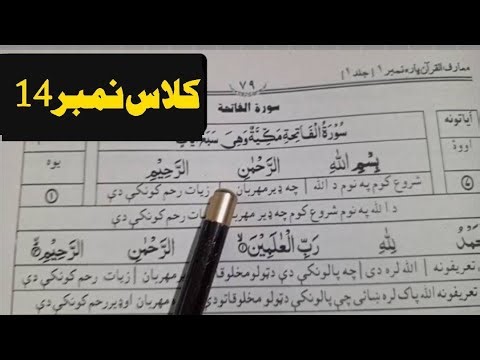 کلاس نمبر 14
معارف القرآن پاره نمبر ۱ (جلد ۱)
۷۹
سورة الفاتحة
آیاتونه
اووهٔ
سُوْرَةُ الْفَاتِحَةِ مَكِّيَّةٌ وَّهِيَ
یوه
بِسْمِ اللهِ الرَّحْمٰنِ الرَّحِيْمِ
شروع کوم په نوم د الله | چه ډیر مهربان | زیات رحم کونکي دي
د الله په نوم شروع کوم چه ډیر مهربان زیات رحم کونکي دي
لِلّٰهِ رَبِّ الْعٰلَمِيْنَ الرَّحْمٰنِ الرَّحِيْمِ
تعریفونه | الله لره دي | چه پالونکي دټولو مخلوقاتو | مهربان | زیات رحم کونکي دي
تعریفونه الله پاک لره ښائي چې پالونکي دټولو مخلوقاتو دي مهربان اوډیر رحم کونکي دي